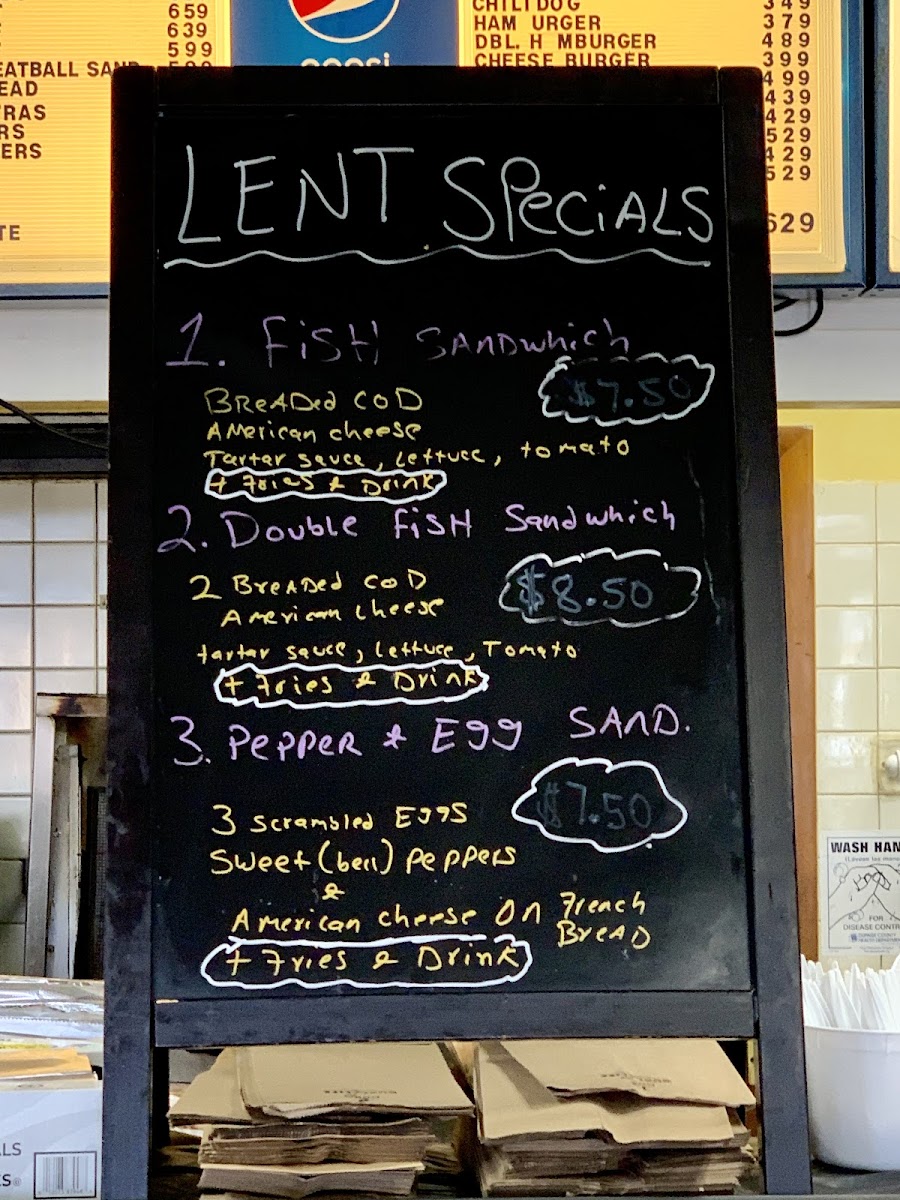 659
639
599
EATBALL SAND
EAD
RAS
RS
ERS
TE
pepsi
CHILI DOG 349
HAM URGER 379
DBL. H MBURGER 489
CHEESE BURGER 399
499
439
429
529
429
529
629
LENT SPeCiALS
1. FiSH SANDwhich
$7.50
BReADed COD
AMerican cheese
Tartar sauce, Lettuce, tomato
+ Fries & Drink
2. Double FiSH Sandwhich
2 BreaDed COD
$8.50
American cheese
tartar sauce, lettuce, Tomato
+ Fries & Drink
3. PePPeR & Egg SAND.
$7.50
3 scrambled Eggs
Sweet (bell) PePPers
&
American cheese ON French
BreAD
+ Fries & Drink
WASH HAN
FOR
DISEASE CONTR
LS
S®